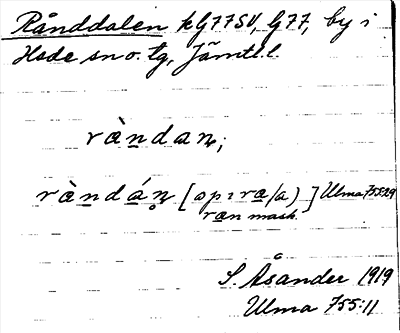 Rånddalen kG77SV, G77, by i
Hede sn o. tg, Jämtl. l.
ràndan;
ràndán [spıra/a)] Ulma 755:29
ran mask.
S. Åsander 1919
Ulma 755:11